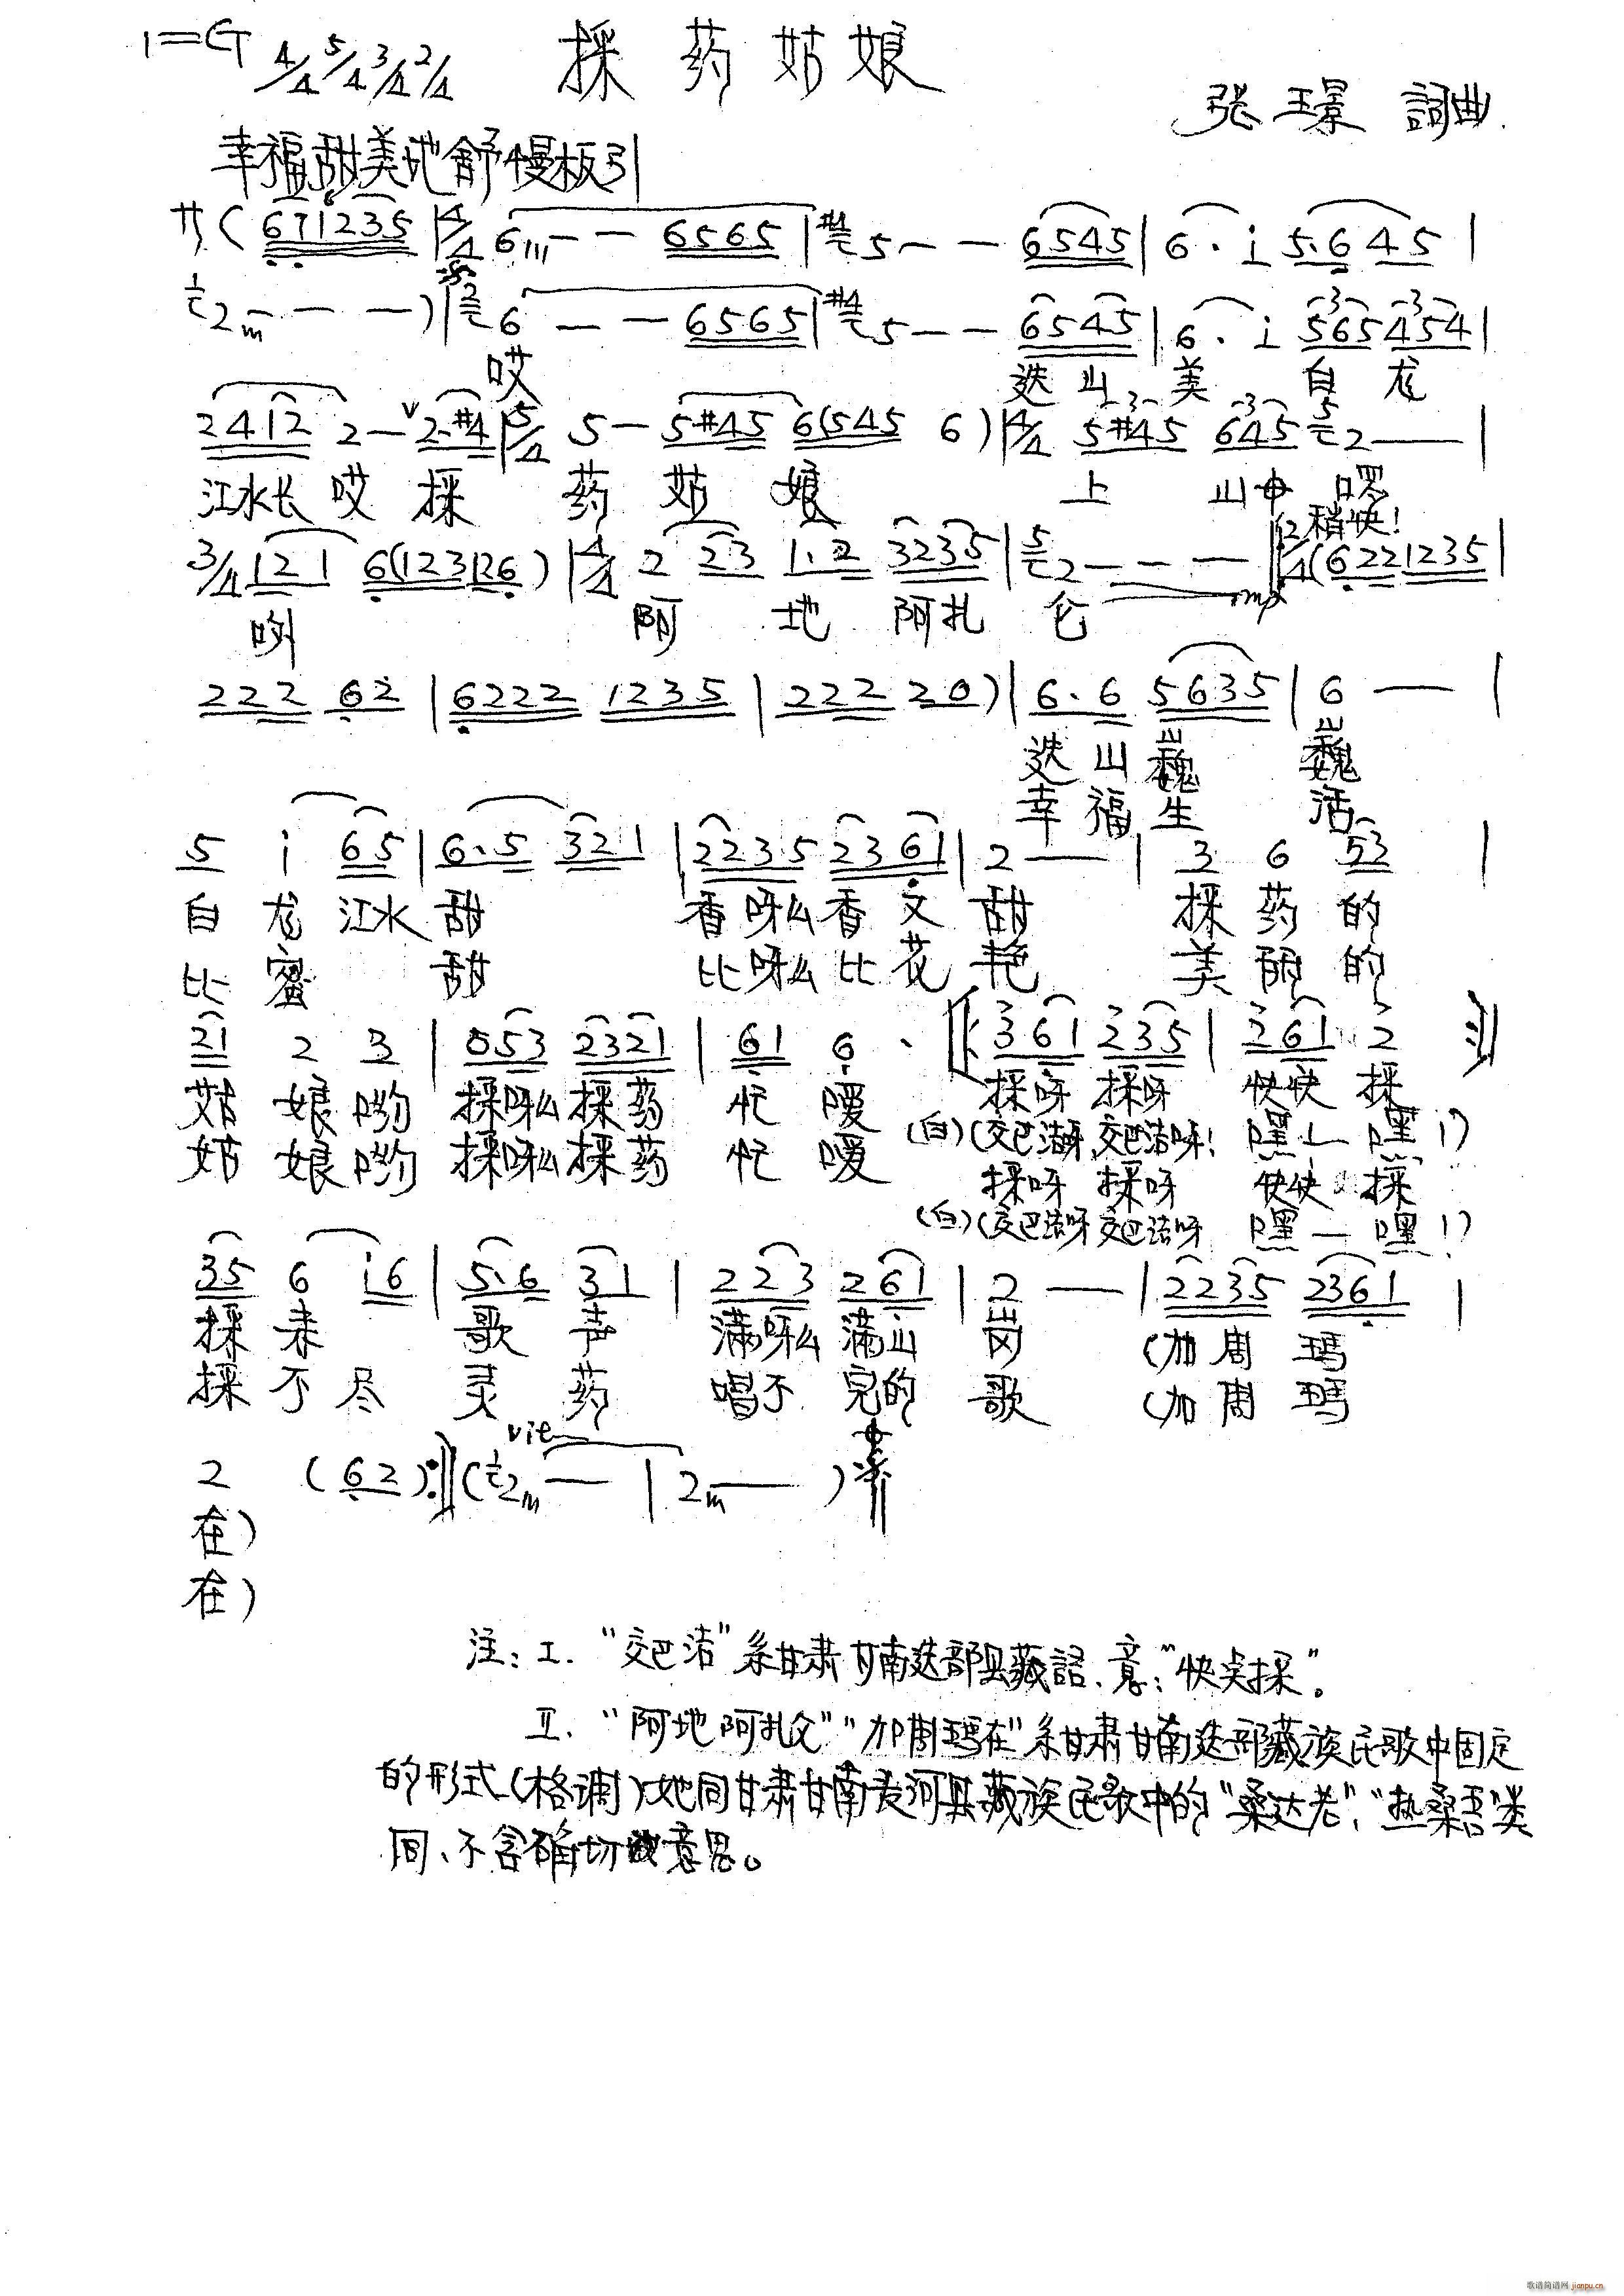 1=G 4/4 5/4 3/4 2/4 採药姑娘
张玉景 詞曲.
幸福甜美地 舒慢板引
サ ( 671235 | 4/4 6 — — 6565 | #4 5 — — 6545 | 6 · i 5·6 45 |
2 — — —) | 2 6 — — 6565 | #4 5 — — 6545 | 6 · i 565 454 |
哎 迭山 美 白 龙
2412 2 — V 2·#4 | 5/4 5 — 5#45 6(545 6) | 4/4 5#45 645 5 2 — |
江水长 哎 採 药 姑 娘 上 山 啰
稍快!
3/4 12 1 6(123126) | 4/4 2 23 1·2 3235 | 5 2 — — — | 2/4 (6221235 |
mp
啊 阿 地 阿扎 仑
222 62 | 6222 1235 | 222 20) | 6·6 5635 | 6 — |
迭山巍 巍
幸福生 活
5 i 65 | 6·5 321 | 2235 2361 | 2 — | 3 6 53 |
白 龙 江水 甜 香呀么香又 甜 採 药 的
比 蜜 甜 比呀么比花 艳 美 丽 的
21 2 3 | 053 2321 | 61 6 · 361 235 | 261 2
姑 娘 哟 採呀么採药 忙 嗳 採呀 採呀 快快 採
(白)(交巴洁呀,交巴洁呀! 嘿 — 嘿!)
姑 娘 哟 採呀么採药 忙 嗳 採呀 採呀 快快 採
(白)(交巴洁呀 交巴洁呀 嘿 — 嘿!)
35 6 i6 | 5·6 31 | 223 261 | 2 — | 2235 2361 |
採 来 歌 声 满呀么满山 岗 (加周 玛
採 不 尽 灵 药 唱不 完的 歌 (加周 玛
vit
2 (62) :‖ (2 — | 2 — )
在)
在)
注: I. “交巴洁”系甘肃甘南迭部县藏語、意:“快点採”。
II. “阿地阿扎仑”“加周玛在”系甘肃甘南迭部藏族民歌中固定
的形式(格调)她同甘肃甘南夏河县藏族民歌中的“桑达老”、“热桑吾”类
同、不含确切意思。
歌谱简谱网 jianpu.cn